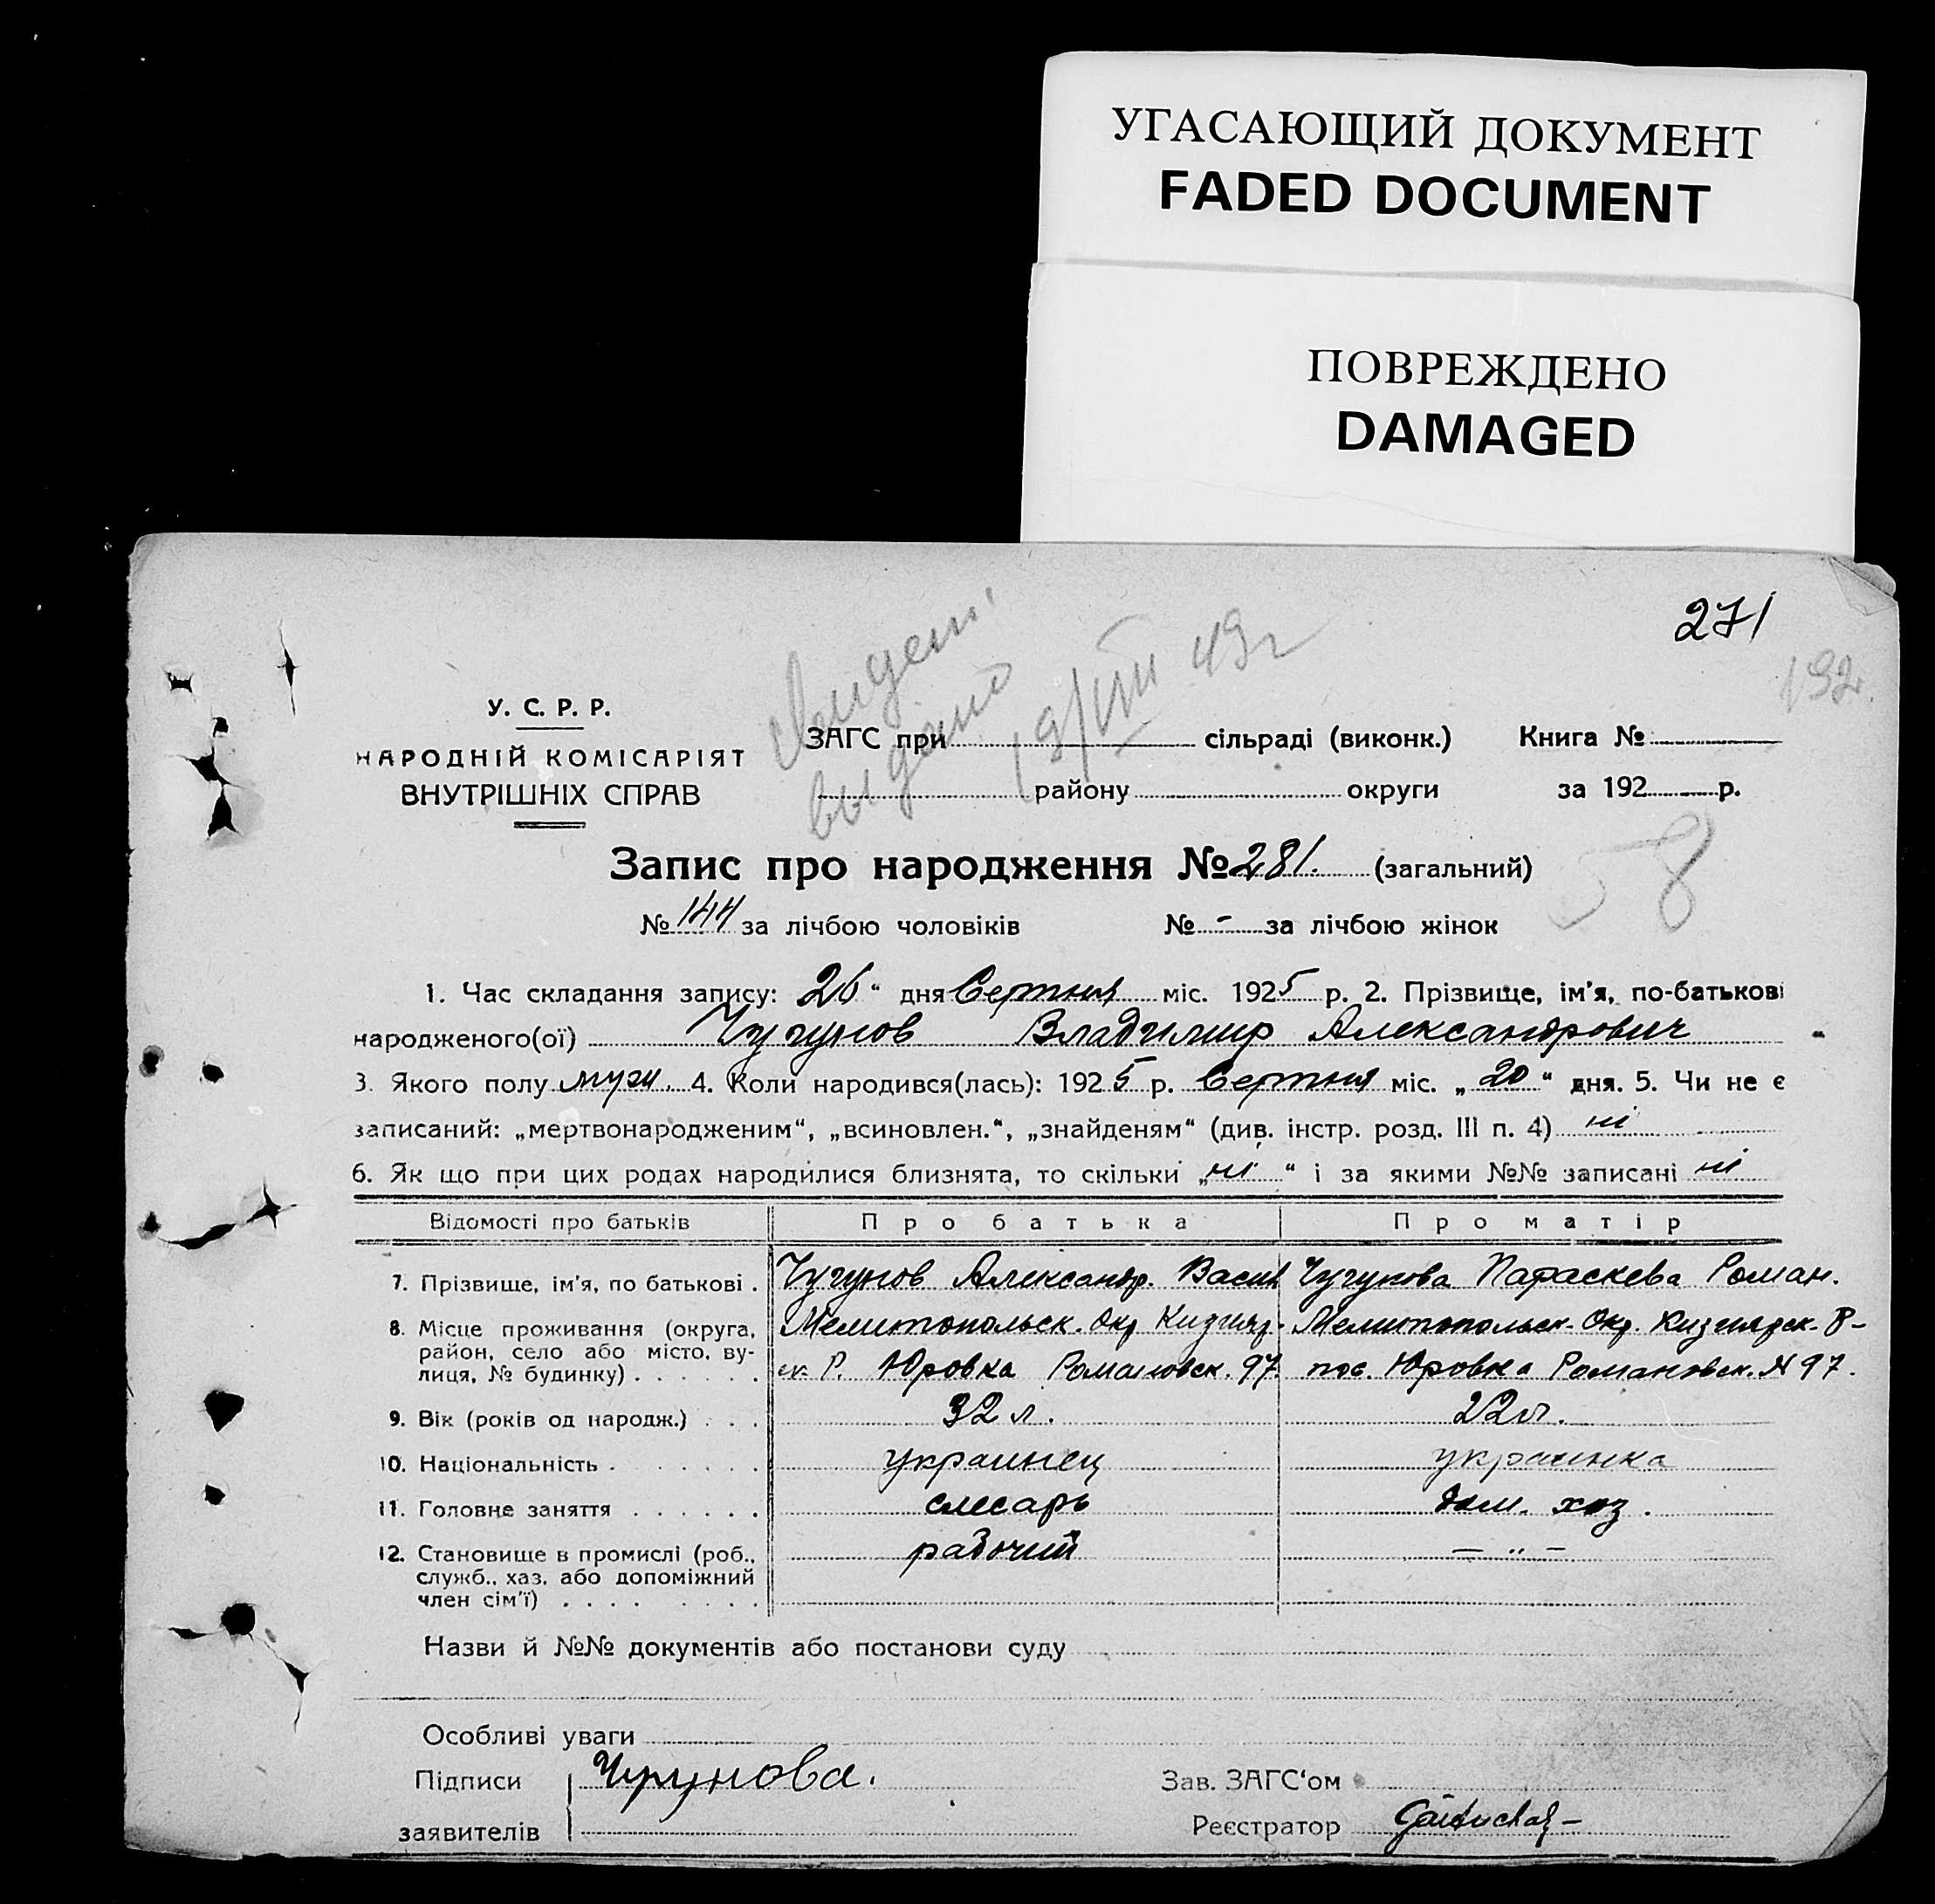 УГАСАЮЩИЙ ДОКУМЕНТ
FADED DOCUMENT
ПОВРЕЖДЕНО
DAMAGED
271
192
У. С. Р. Р.
НАРОДНІЙ КОМІСАРІЯТ
ВНУТРІШНІХ СПРАВ
выдано 19/VIII 49 г
ЗАГС при сільраді (виконк.) Книга №
району округи за 192 р.
Запис про народження № 281. (загальний)
58
№ 144 за лічбою чоловіків № - за лічбою жінок
1. Час складання запису: 26 " дня Серпня міс. 1925 р. 2. Прізвище, ім'я, по-батькові
народженого(ої) Чугунов Владимир Александрович
3. Якого полу муж. 4. Коли народився(лась): 1925 р. Серпня міс. „ 20 " дня. 5. Чи не є
записаний: „мертвонародженим", „всиновлен.", „знайденям" (див. інстр. розд. III п. 4) ні
6. Як що при цих родах народилися близнята, то скільки „ ні " і за якими №№ записані ні
Відомості про батьків Про батька Про матір
7. Прізвище, ім'я, по батькові . Чугунов Александр. Васил Чугунова Параскева Роман.
8. Місце проживання (округа, Мелитопольск. Окр Кизияр- Мелитопольск. Окр. Кизиярск. Р-
район, село або місто, ву- ск. Р. Юровка Романовск. 97. пос. Юровка Романовск. № 97.
лиця, № будинку) . . . . . .
9. Вік (років од народж.) . . . 32 л. 22 л.
10. Національність . . . . . . украинец украинка
11. Головне заняття . . . . . . слесарь дом. хоз.
12. Становище в промислі (роб., рабочий — „ —
служб., хаз. або допоміжний
член сім'ї) . . . . . . . .
Назви й №№ документів або постанови суду
Особливі уваги
Підписи Чугунова. Зав. ЗАГС'ом
заявителів Реєстратор